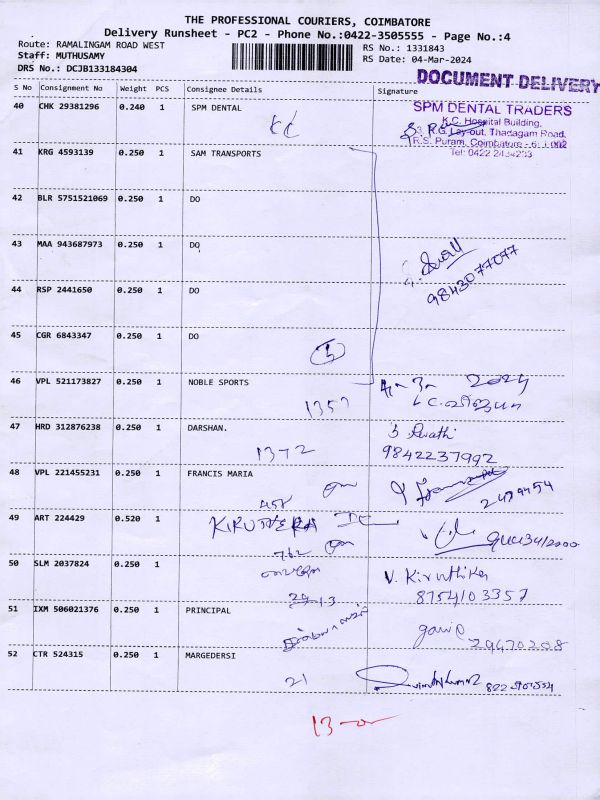 THE PROFESSIONAL COURIERS, COIMBATORE
Delivery Runsheet - PC2 - Phone No.:0422-3505555 - Page No.:4
Route: RAMALINGAM ROAD WEST
Staff: MUTHUSAMY
DRS No.: DCJB133184304
RS No.: 1331843
RS Date: 04-Mar-2024
DOCUMENT DELIVERY
S No Consignment No Weight PCS Consignee Details Signature
40 CHK 29381296 0.240 1 SPM DENTAL
KC
SPM DENTAL TRADERS
K.C. Hospital Building,
R.G. Layout, Thadagam Road,
R.S. Puram, Coimbatore
Tel: 0422
41 KRG 4593139 0.250 1 SAM TRANSPORTS
42 BLR 5751521069 0.250 1 DO
43 MAA 943687973 0.250 1 DO
9843077077
44 RSP 2441650 0.250 1 DO
45 CGR 6843347 0.250 1 DO
5
46 VPL 521173827 0.250 1 NOBLE SPORTS
1357
2024
47 HRD 312876238 0.250 1 DARSHAN.
1372
Swathi
9842237992
48 VPL 221455231 0.250 1 FRANCIS MARIA
2479454
49 ART 224429 0.520 1
762
50 SLM 2037824 0.250 1
V. Kiruthika
8754103357
51 IXM 506021376 0.250 1 PRINCIPAL
29470208
52 CTR 524315 0.250 1 MARGEDERSI
21
13